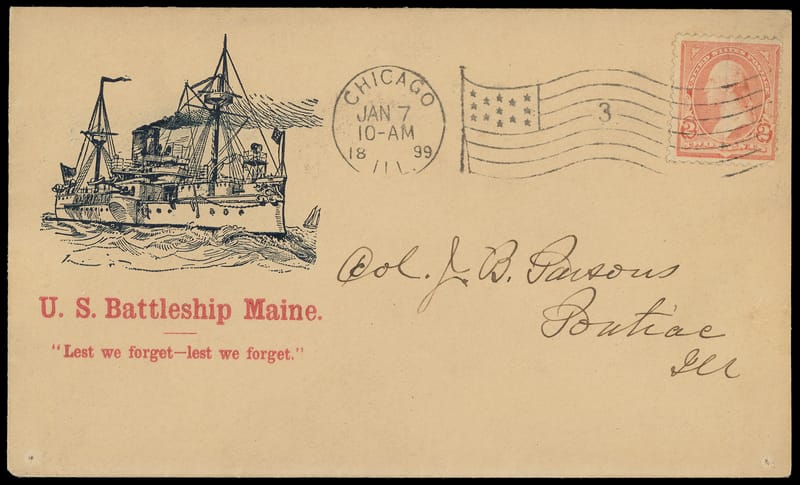 CHICAGO
JAN 7
10-AM
18 99
ILL.
3
UNITED STATES POSTAGE
2 2
TWO CENTS
Col. J. B. Parsons
Pontiac
Ill
U. S. Battleship Maine.
"Lest we forget—lest we forget."